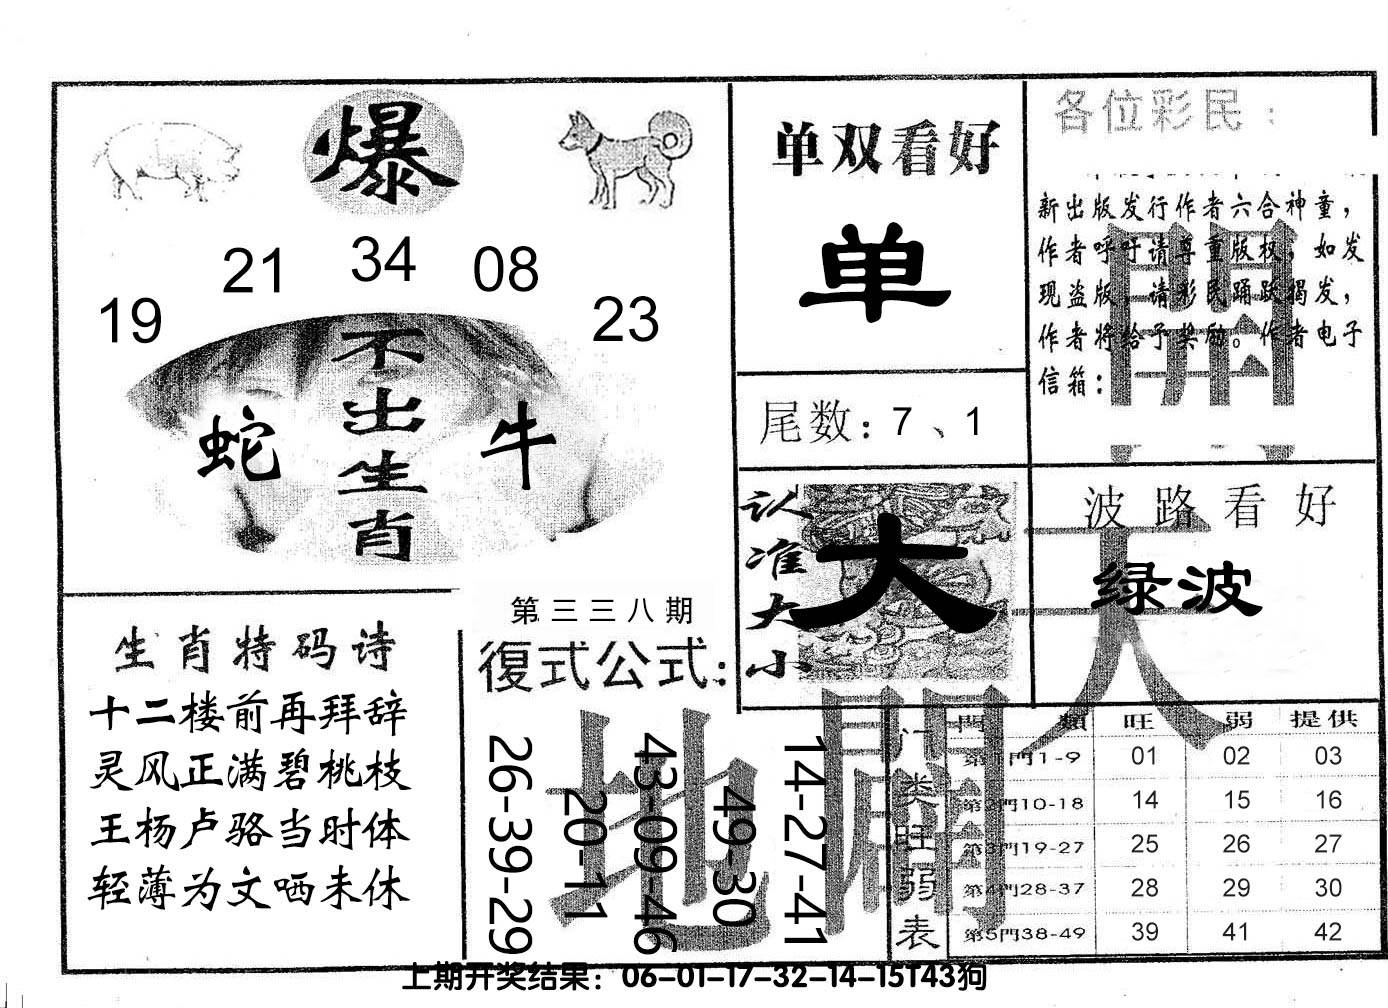 爆
19
21
34
08
23
不出生肖
蛇
牛
单双看好
单
尾数：7、1
各位彩民：
新出版发行作者六合神童，
作者呼吁请尊重版权，如发
现盗版，请彩民踊跃揭发，
作者将给予奖励。作者电子
信箱：
認准大小
大
波路看好
绿波
天
生肖特码诗
十二楼前再拜辞
灵风正满碧桃枝
王杨卢骆当时体
轻薄为文哂未休
第三三八期
復式公式：
26-39-29
20-11
43-09-46
49-30
14-27-41
地
門類 旺 弱 提供
第1門1-9 01 02 03
第2門10-18 14 15 16
第3門19-27 25 26 27
第4門28-37 28 29 30
第5門38-49 39 41 42
门类旺弱表
上期开奖结果：06-01-17-32-14-15T43狗